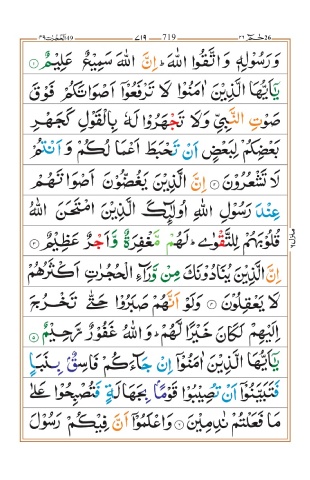 حٰمٓ 26 ٢٦ 719 ٧١٩ الحجرٰت 49 ٤٩
وَرَسُوْلِهٖ وَاتَّقُوا اللّٰهَ ؕ اِنَّ اللّٰهَ سَمِيْعٌ عَلِيْمٌ ﴿۱﴾
يٰۤاَيُّهَا الَّذِيْنَ اٰمَنُوْا لَا تَرْفَعُوْۤا اَصْوَاتَكُمْ فَوْقَ
صَوْتِ النَّبِيِّ وَلَا تَجْهَرُوْا لَهٗ بِالْقَوْلِ كَجَهْرِ
بَعْضِكُمْ لِبَعْضٍ اَنْ تَحْبَطَ اَعْمَالُكُمْ وَاَنْتُمْ
لَا تَشْعُرُوْنَ ﴿۲﴾ اِنَّ الَّذِيْنَ يَغُضُّوْنَ اَصْوَاتَهُمْ
عِنْدَ رَسُوْلِ اللّٰهِ اُولٰٓئِكَ الَّذِيْنَ امْتَحَنَ اللّٰهُ
قُلُوْبَهُمْ لِلتَّقْوٰى ؕ لَهُمْ مَّغْفِرَةٌ وَّاَجْرٌ عَظِيْمٌ ﴿۳﴾
اِنَّ الَّذِيْنَ يُنَادُوْنَكَ مِنْ وَّرَآءِ الْحُجُرٰتِ اَكْثَرُهُمْ
لَا يَعْقِلُوْنَ ﴿۴﴾ وَلَوْ اَنَّهُمْ صَبَرُوْا حَتّٰى تَخْرُجَ
اِلَيْهِمْ لَكَانَ خَيْرًا لَّهُمْ ؕ وَاللّٰهُ غَفُوْرٌ رَّحِيْمٌ ﴿۵﴾
يٰۤاَيُّهَا الَّذِيْنَ اٰمَنُوْۤا اِنْ جَآءَكُمْ فَاسِقٌۢ بِنَبَاٍ
فَتَبَيَّنُوْۤا اَنْ تُصِيْبُوْا قَوْمًۢا بِجَهَالَةٍ فَتُصْبِحُوْا عَلٰى
مَا فَعَلْتُمْ نٰدِمِيْنَ ﴿۶﴾ وَاعْلَمُوْۤا اَنَّ فِيْكُمْ رَسُوْلَ
منزل ٦